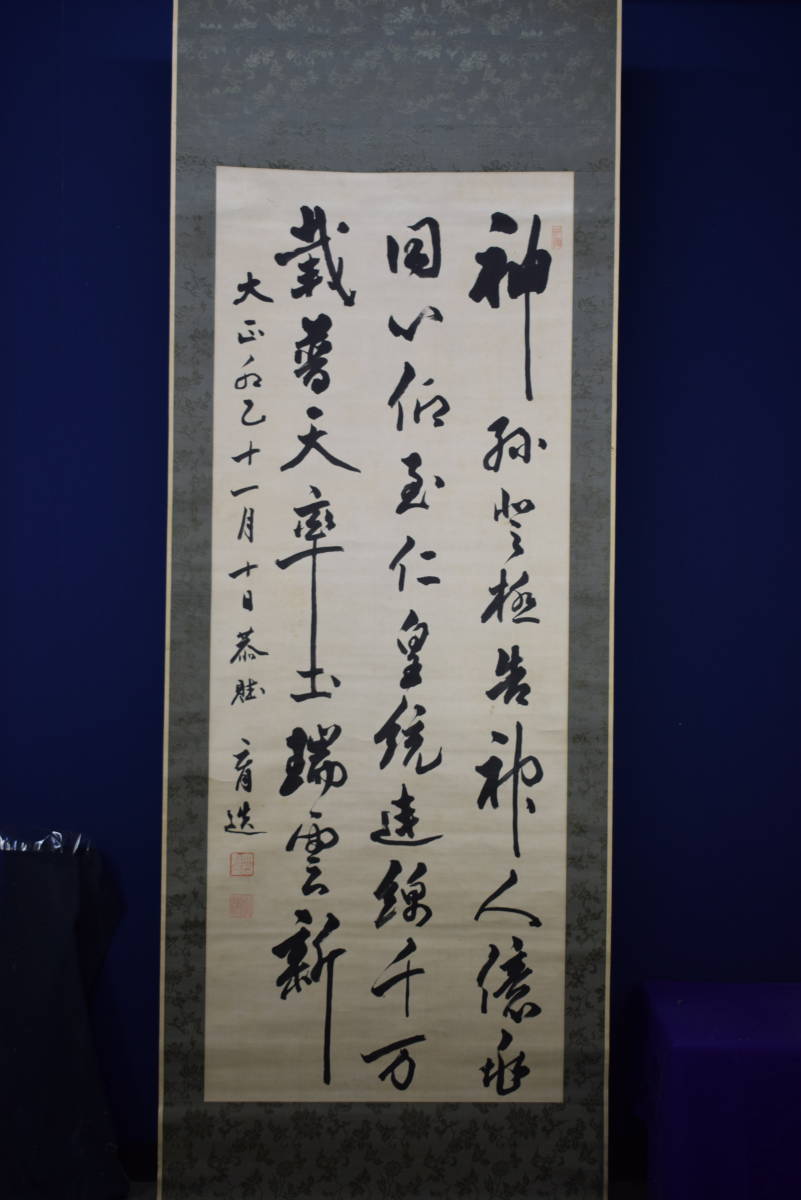 神孫登極告神人億兆
同心仰至仁皇統連綿千万
載普天率土瑞雲新
大正卯乙十一月十日恭賦 育